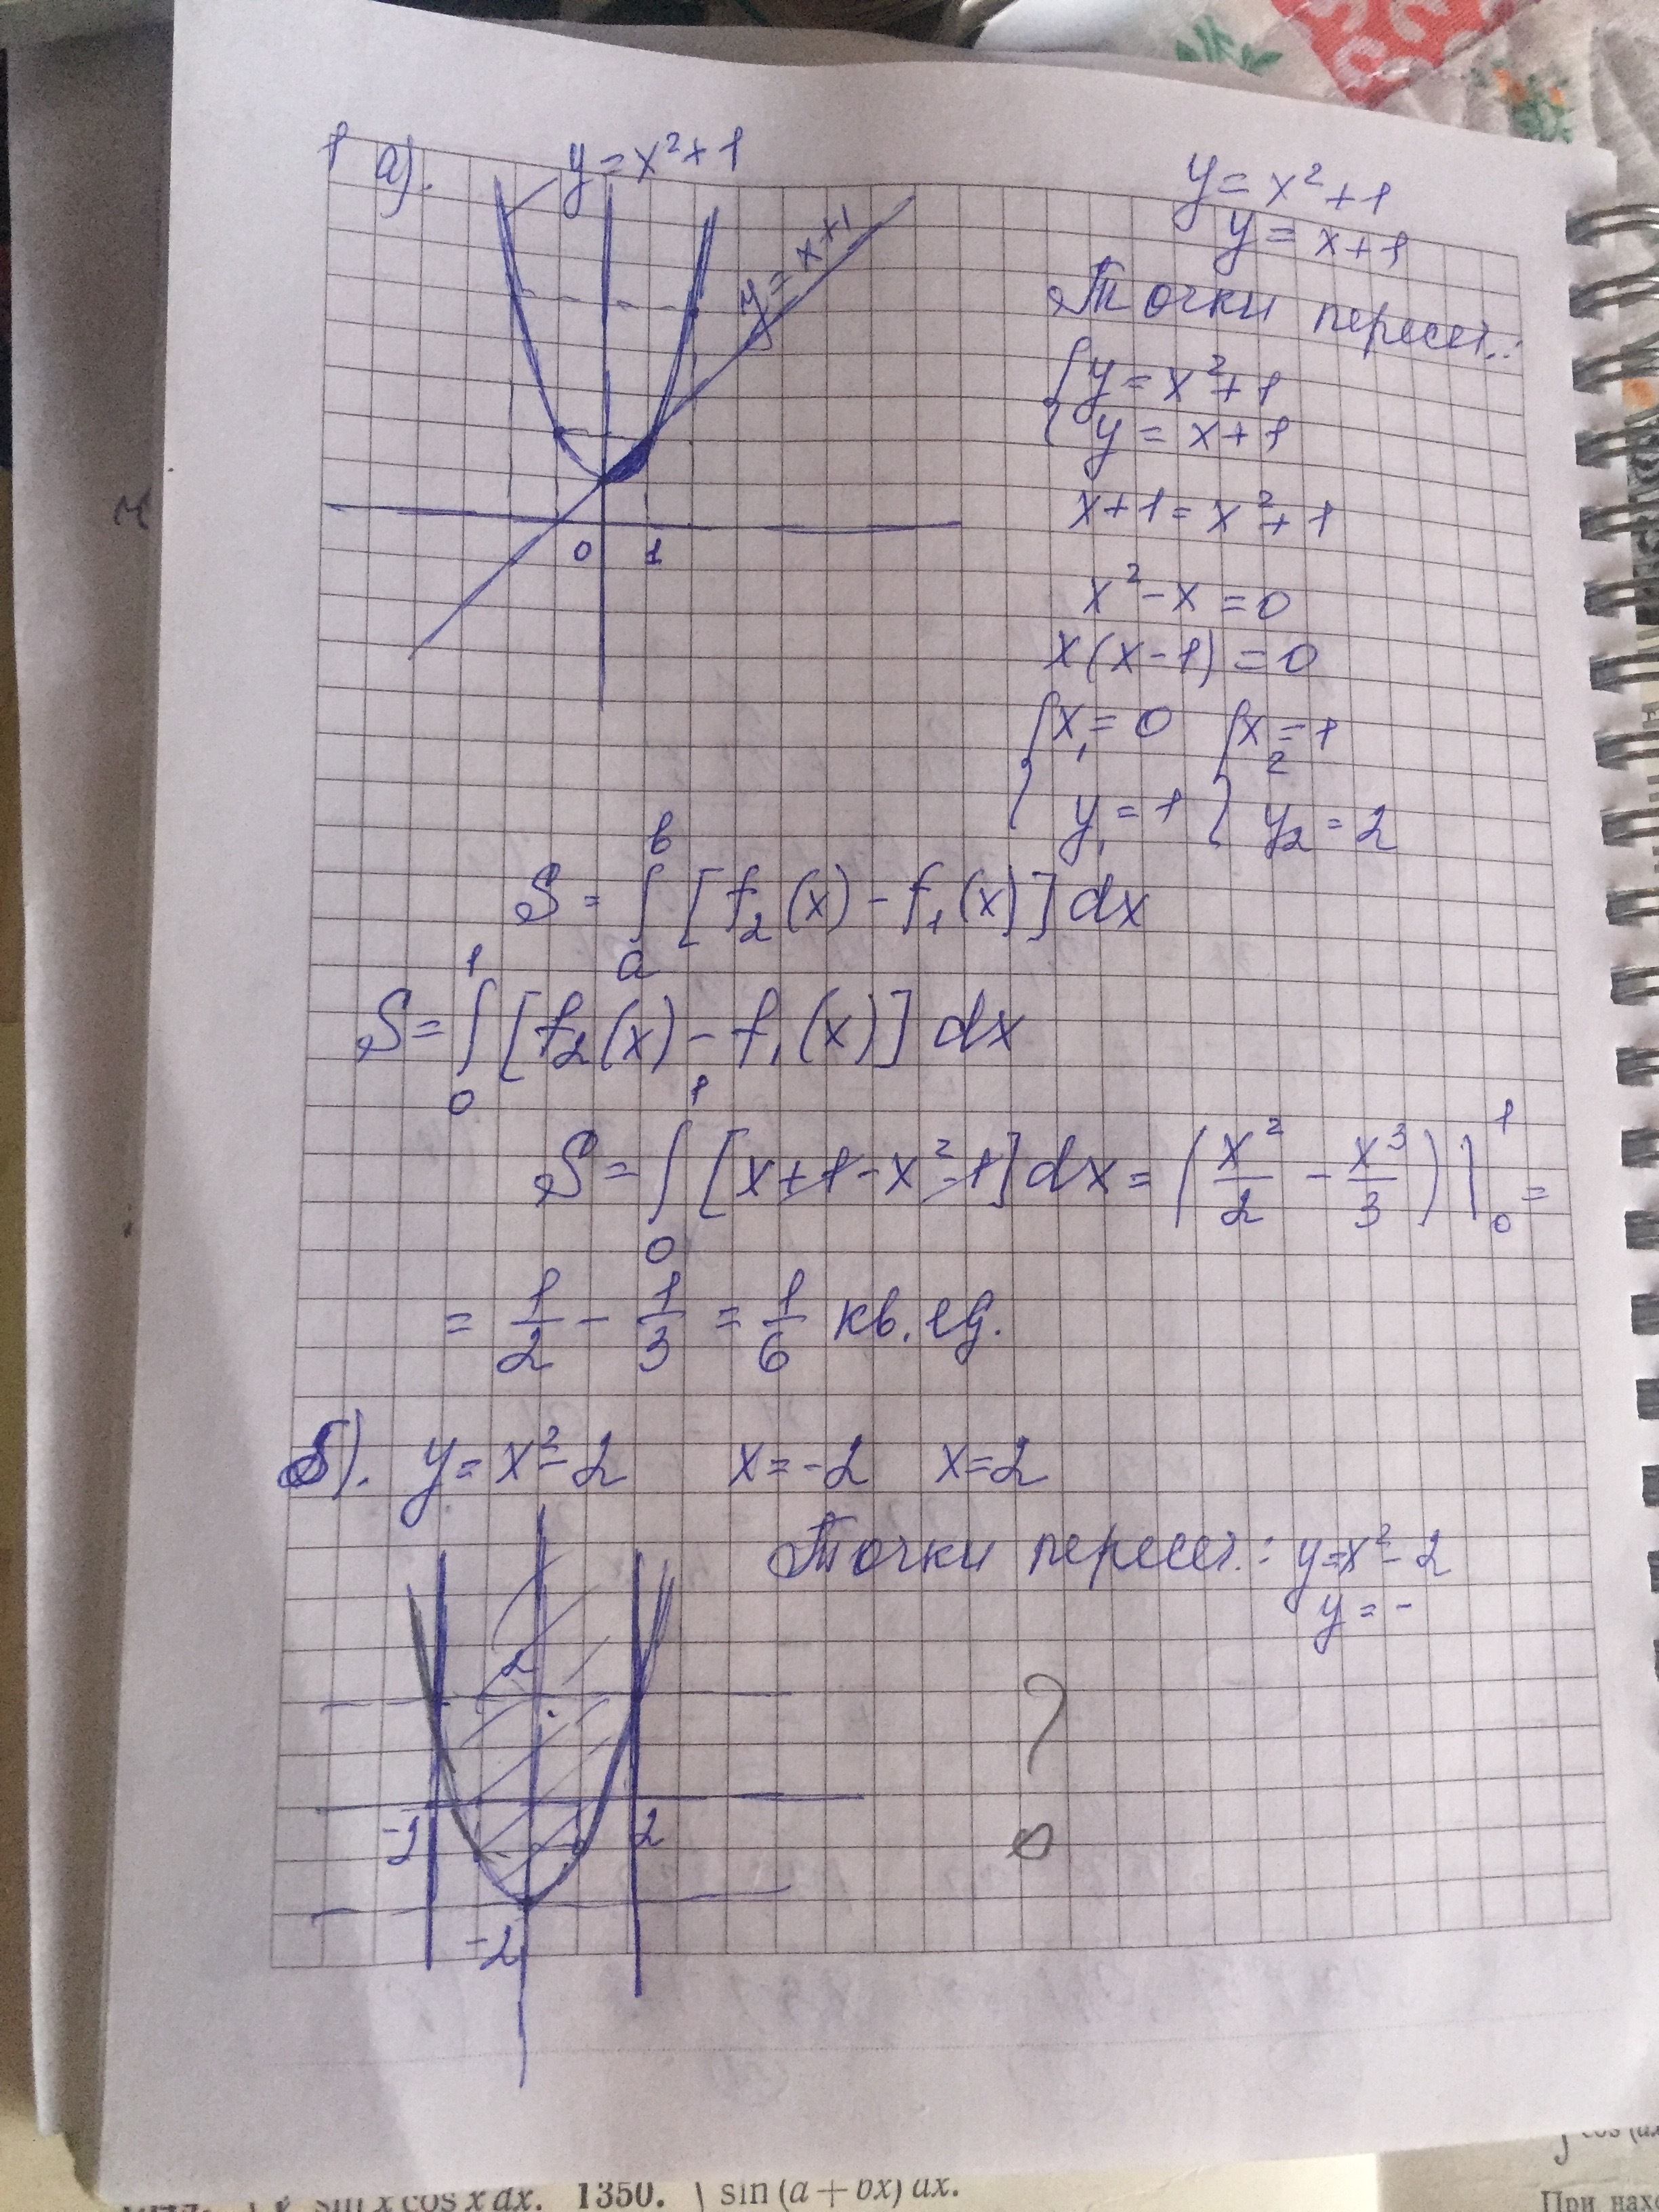 1 а). y = x² + 1
y = x + 1
0 1
y = x² + 1
y = x + 1
Точки пересеч.:
{ y = x² + 1
{ y = x + 1
x + 1 = x² + 1
x² - x = 0
x(x - 1) = 0
{ x₁ = 0 { x₂ = 1
{ y₁ = 1 { y₂ = 2
S = ∫ₐᵇ [f₂(x) - f₁(x)] dx
S = ∫₀¹ [f₂(x) - f₁(x)] dx
S = ∫₀¹ [x + 1 - x² - 1] dx = (x²/2 - x³/3) |₀¹ =
= 1/2 - 1/3 = 1/6 кв. ед.
б). y = x² - 2 x = -2 x = 2
Точки пересеч.: y = x² - 2
y = -
2
-2 2
-2
?
sin x cos x dx. 1350. ∫ sin (a + bx) dx.